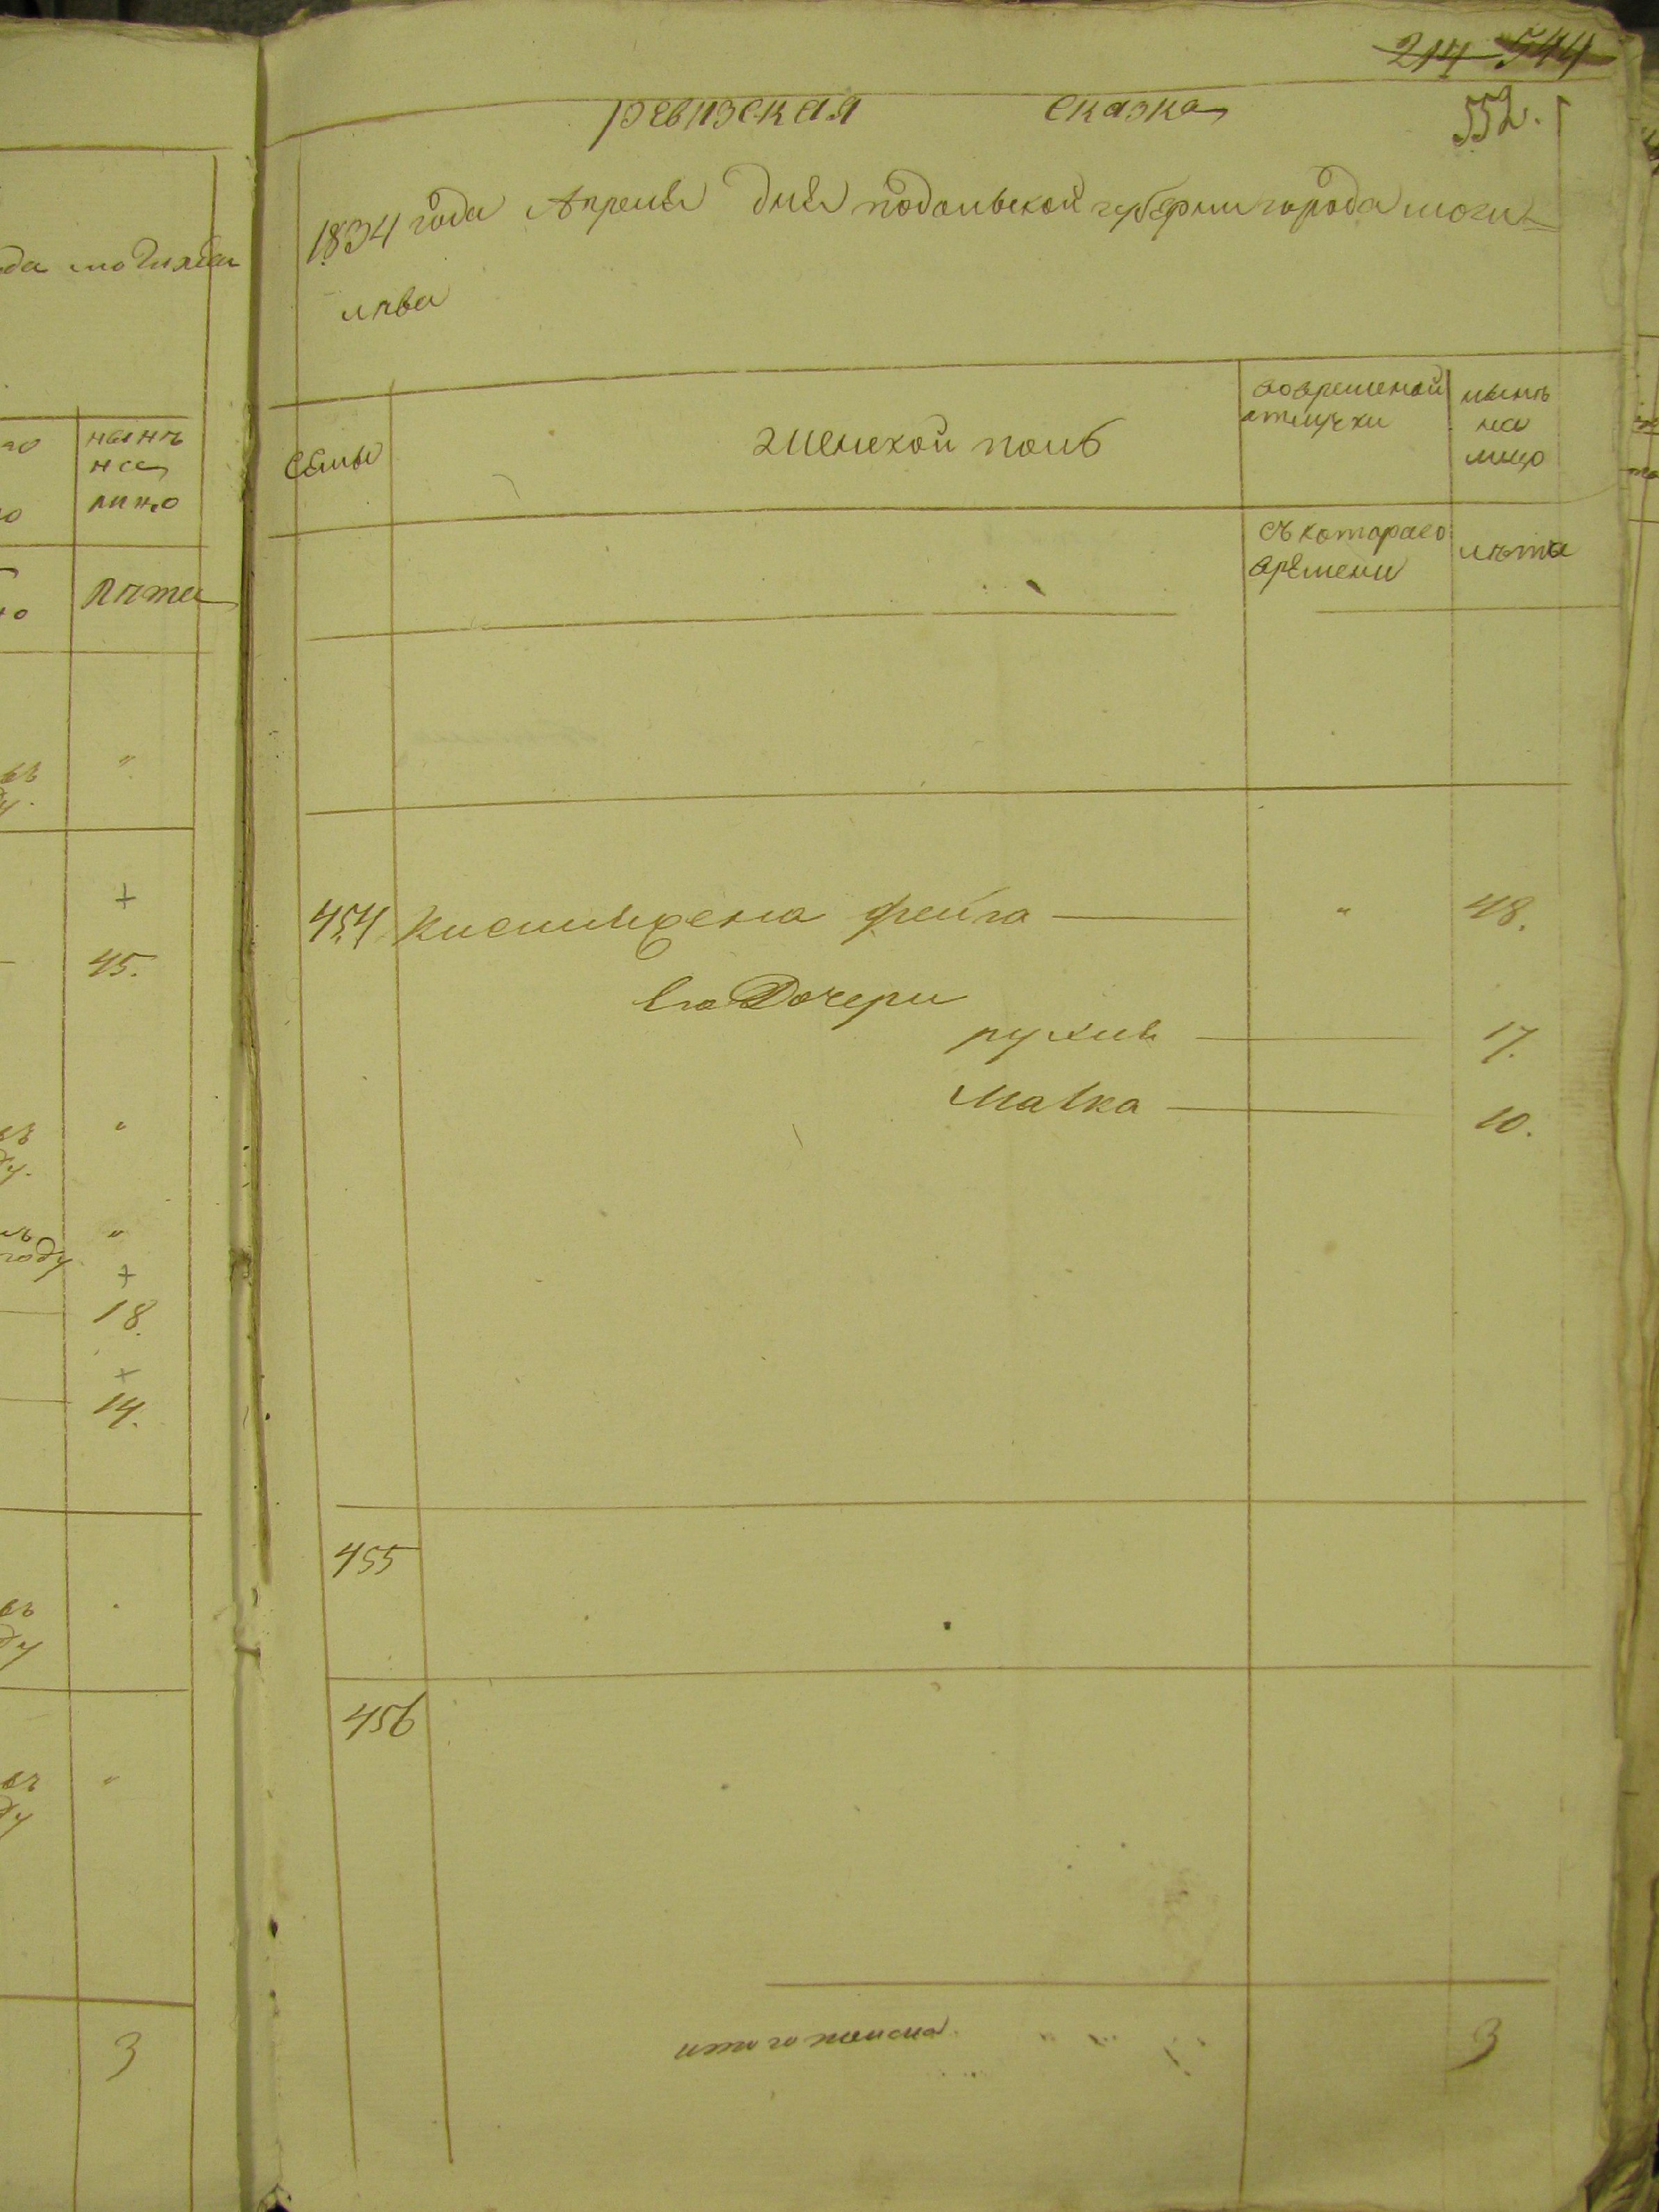 да могилева
нынъ
на
лицо
лѣта
"
+
45.
"
"
году
+
18.
+
14.
"
3
214 544
552.
ревизская сказка
1834 года Апреля дня подольской губернии города моги=
лѣва
семьи
женской полъ
вовременой
отлучки
нынѣ
на
лицо
съкотораго
времени
лѣта
454 жена фейга " 48.
Его Дочери
рухля 17.
Малка 10.
455
456
итого женска
3